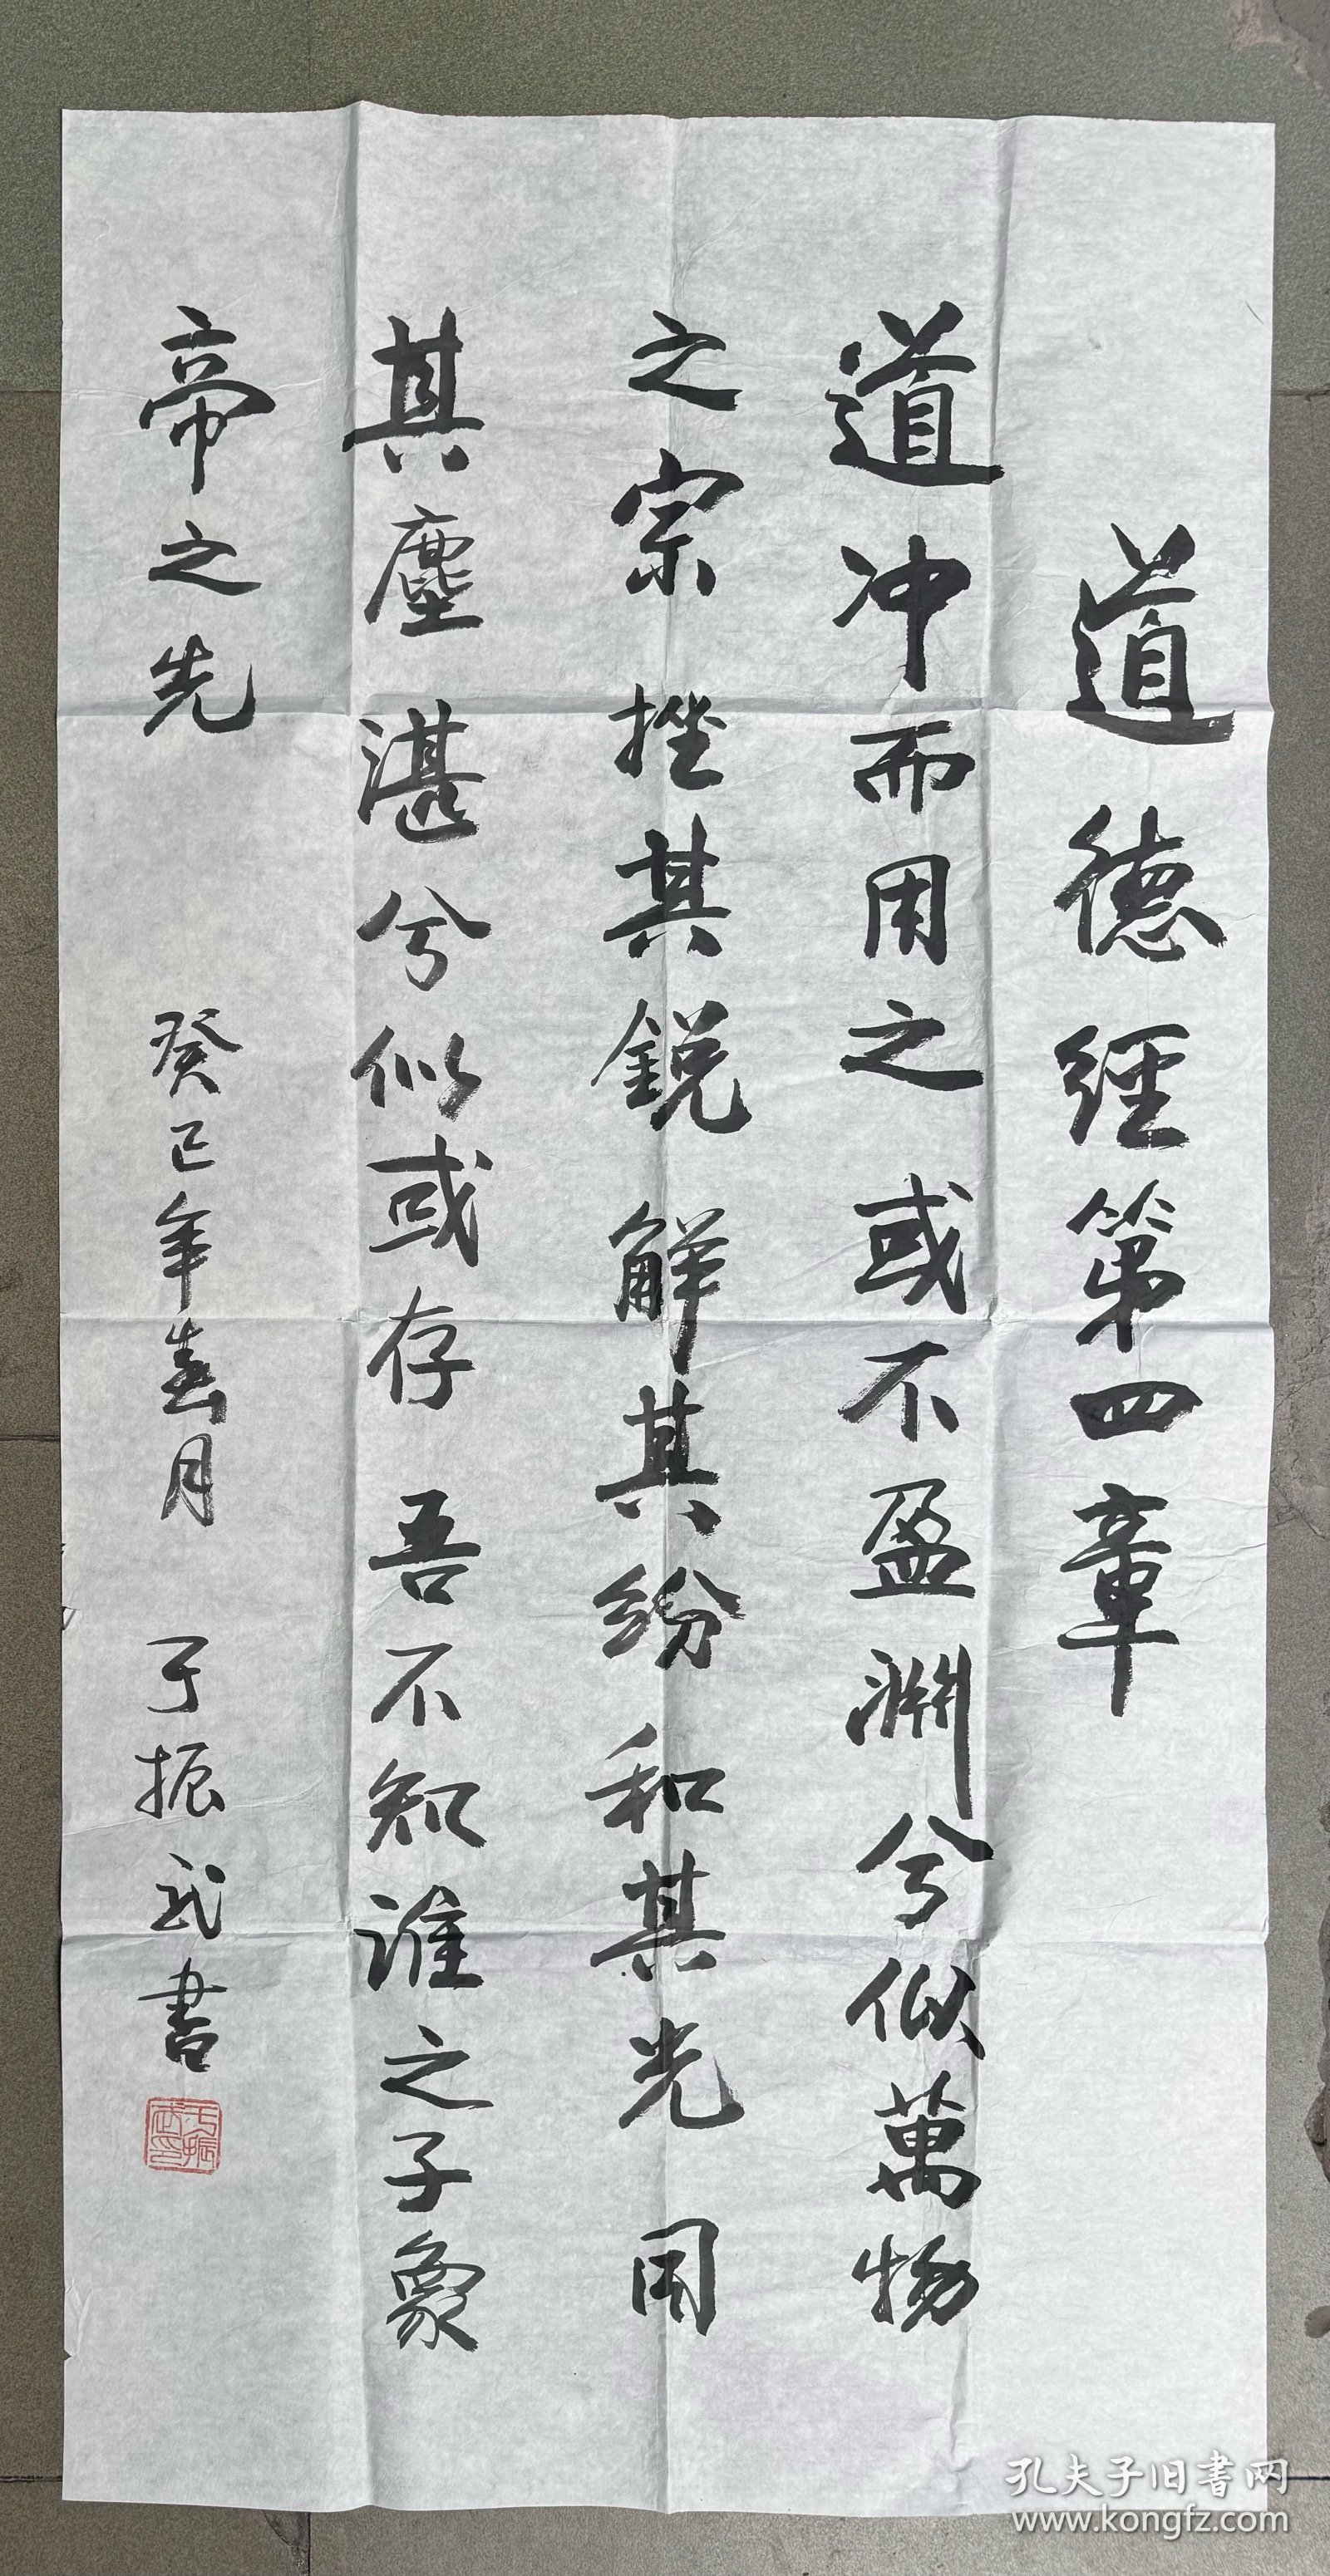 道德經第四章
道冲而用之或不盈淵兮似萬物
之宗挫其銳解其紛和其光同
其塵湛兮似或存吾不知誰之子象
帝之先
癸巳年春月 于振武書
于振武印
孔夫子旧书网
www.kongfz.com